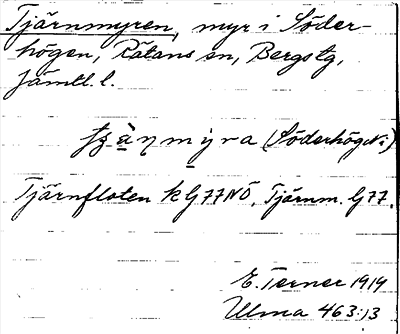 Tjärnmyren, myr i Söder-
högen, Rätans sn, Bergs tg,
Jämtl. l.
(Söderhögen)
Tjärnfloten k Gj 77 NÖ, Tjärnm. Gj 77.
E. Terner 1919
Ulma 463:13